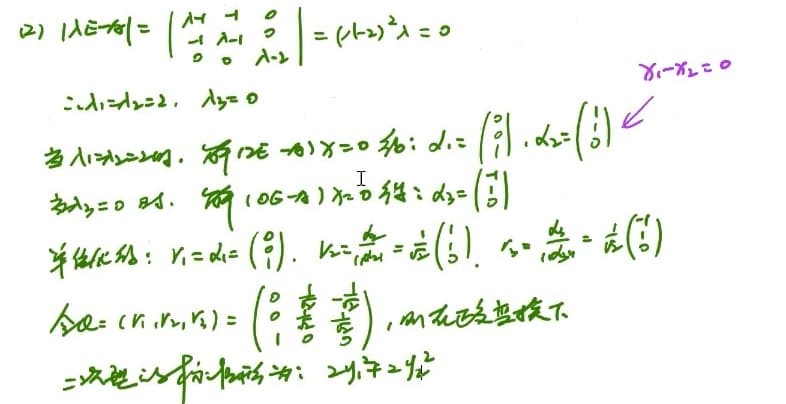 (2) |λE-A| = | λ-1 -1 0 ; -1 λ-1 0 ; 0 0 λ-2 | = (λ-2)²λ = 0
x₁-x₂=0
∴ λ₁=λ₂=2, λ₃=0
当 λ₁=λ₂=2时, 解(2E-A)x=0 得: α₁= (0 0 1), α₂= (1 1 0)
当λ₃=0 时, 解(0E-A)x=0得: α₃= (-1 1 0)
单位化得: r₁=α₁= (0 0 1), r₂= α₂/|α₂| = 1/√2 (1 1 0), r₃= α₃/|α₃| = 1/√2 (-1 1 0)
令Q=(r₁,r₂,r₃) = (0 1/√2 -1/√2 ; 0 1/√2 1/√2 ; 1 0 0), 则在正交变换下
二次型的标准形为: 2y₁²+2y₂²